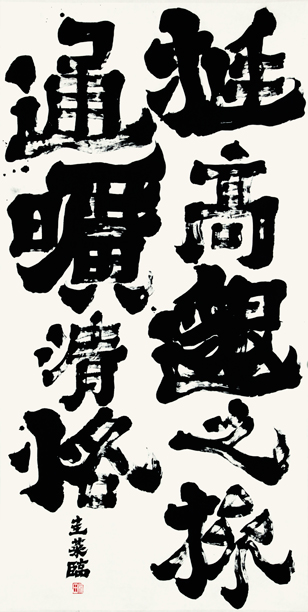 挺高邈之操
通曠清恪
圭葉臨